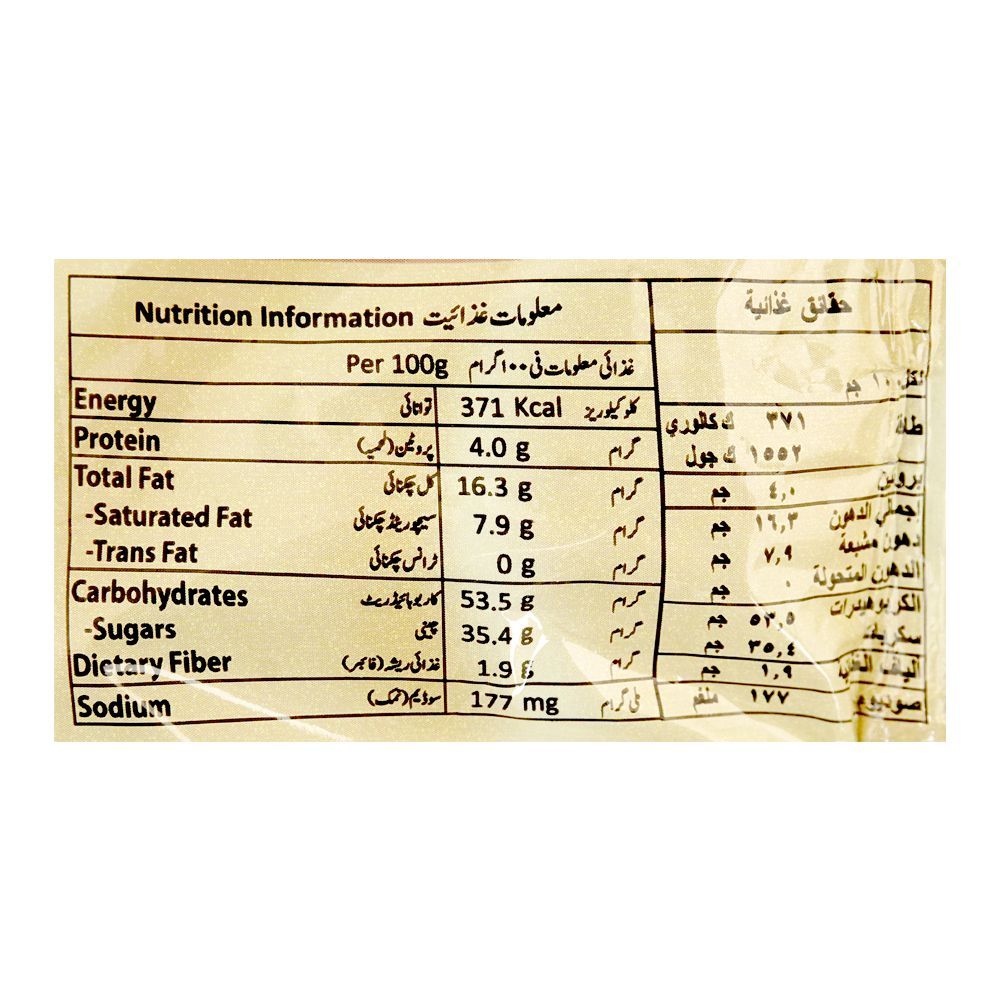 Nutrition Information معلومات غذائیت
Per 100g غذائی معلومات فی ۱۰۰ گرام
Energy توانائی 371 Kcal کلوکیلوریز
Protein پروٹین (لحمیہ) 4.0 g گرام
Total Fat کل چکنائی 16.3 g گرام
-Saturated Fat سیچوریٹڈ چکنائی 7.9 g گرام
-Trans Fat ٹرانس چکنائی 0 g گرام
Carbohydrates کاربوہائیڈریٹ 53.5 g گرام
-Sugars چینی 35.4 g گرام
Dietary Fiber غذائی ریشہ (فائبر) 1.9 g گرام
Sodium سوڈیم (نمک) 177 mg ملی گرام
حقائق غذائية
لكل ١٠٠ جم
طاقة ٣٧١ ك كالوري
١٥٥٢ ك جول
بروتين ٤,٠ جم
إجمالي الدهون ١٦,٣ جم
دهون مشبعة ٧,٩ جم
الدهون المتحولة ٠ جم
الكربوهيدرات ٥٣,٥ جم
سكريات ٣٥,٤ جم
ألياف الغذائية ١,٩ جم
صوديوم ١٧٧ ملغم